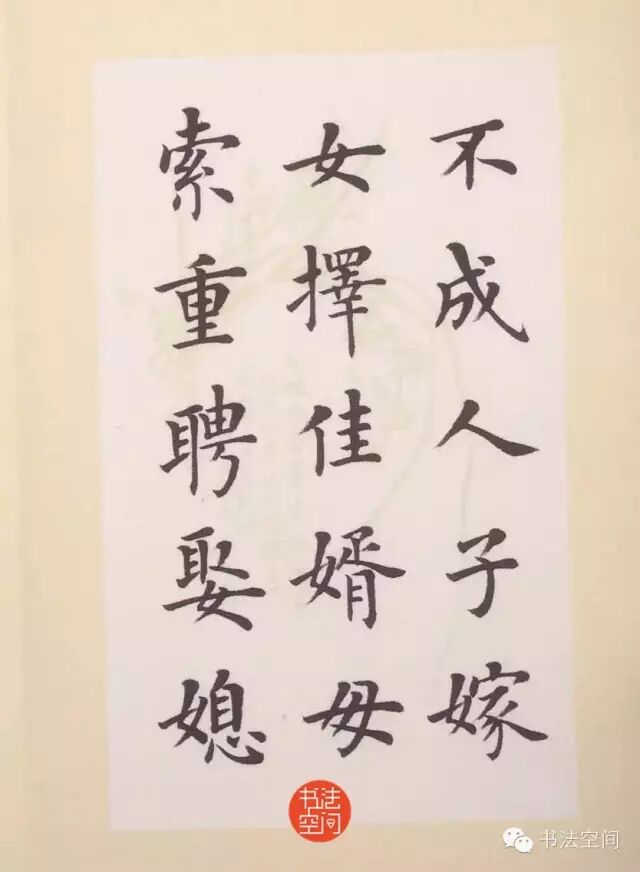 不成人子嫁
女擇佳婿毋
索重聘娶媳
书法
空间
书法空间